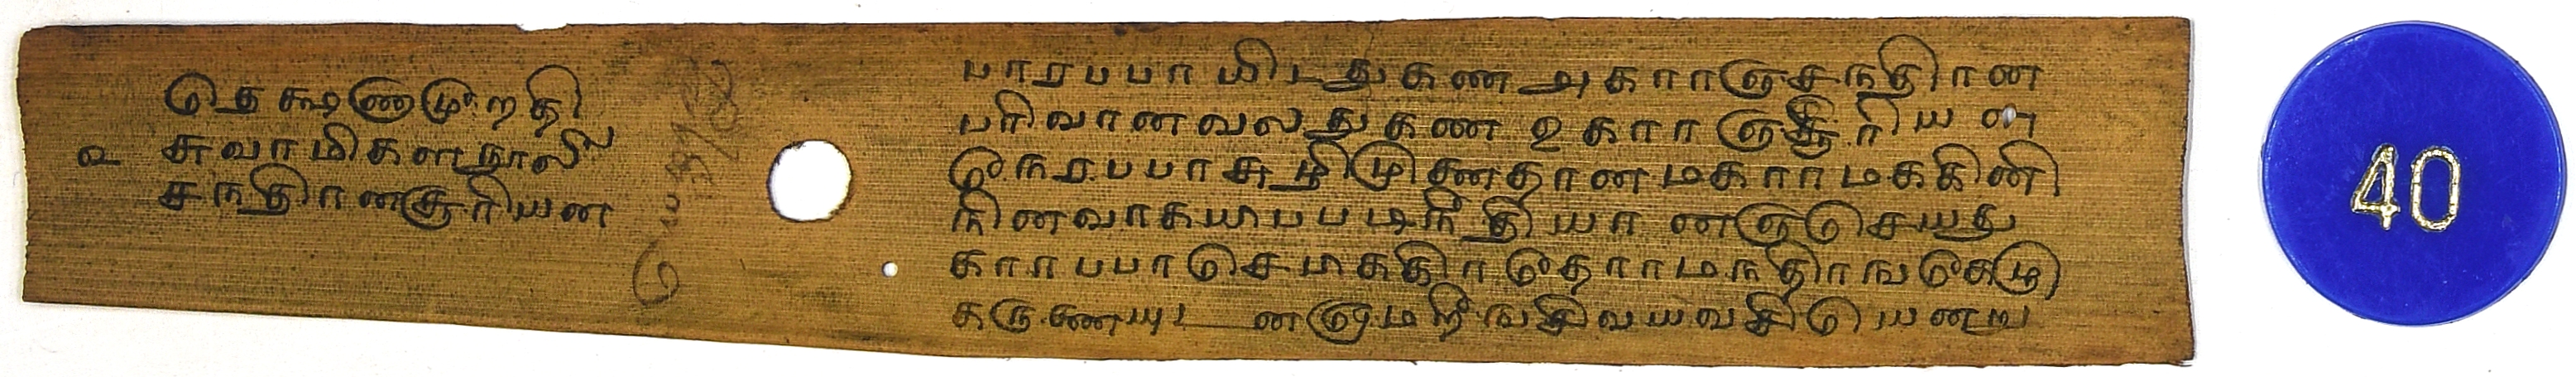 தெக்ஷணமூறதி
உ சுவாமிகளநூலி
சநதிரனசூரியன
பாரபபாயிடதுகண அகாரஞசநதிரன
பரிவானவலதுகண உகாரஞசூரியன
நேரபபாசுழிமுனைதானமகாரமககினி
நினவாகயிபபடிநீதியானஞசெயது
காரபபாசெபிககிறதோரமநதிரஙகேழு
கருணையுடனஓமறீஙசிவயவசியெனறு
40